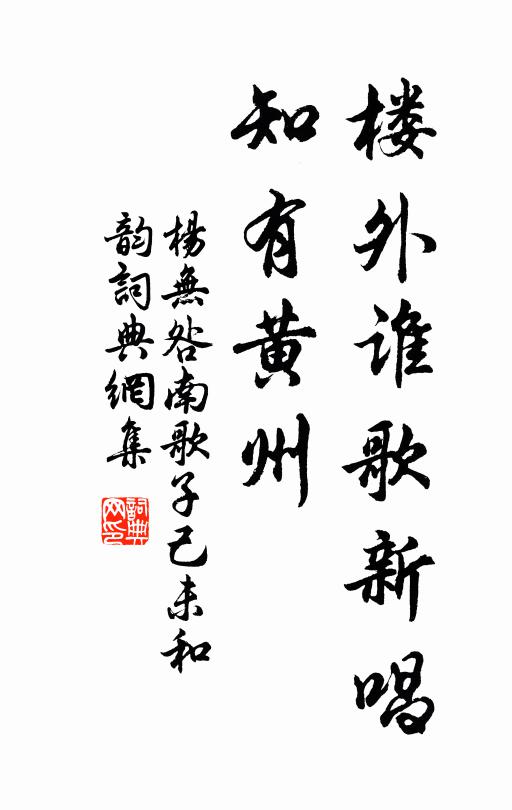 楼外谁歌新唱
知有黄州
楊無咎南歌子己未和
韵詞典網集
詞典
网印